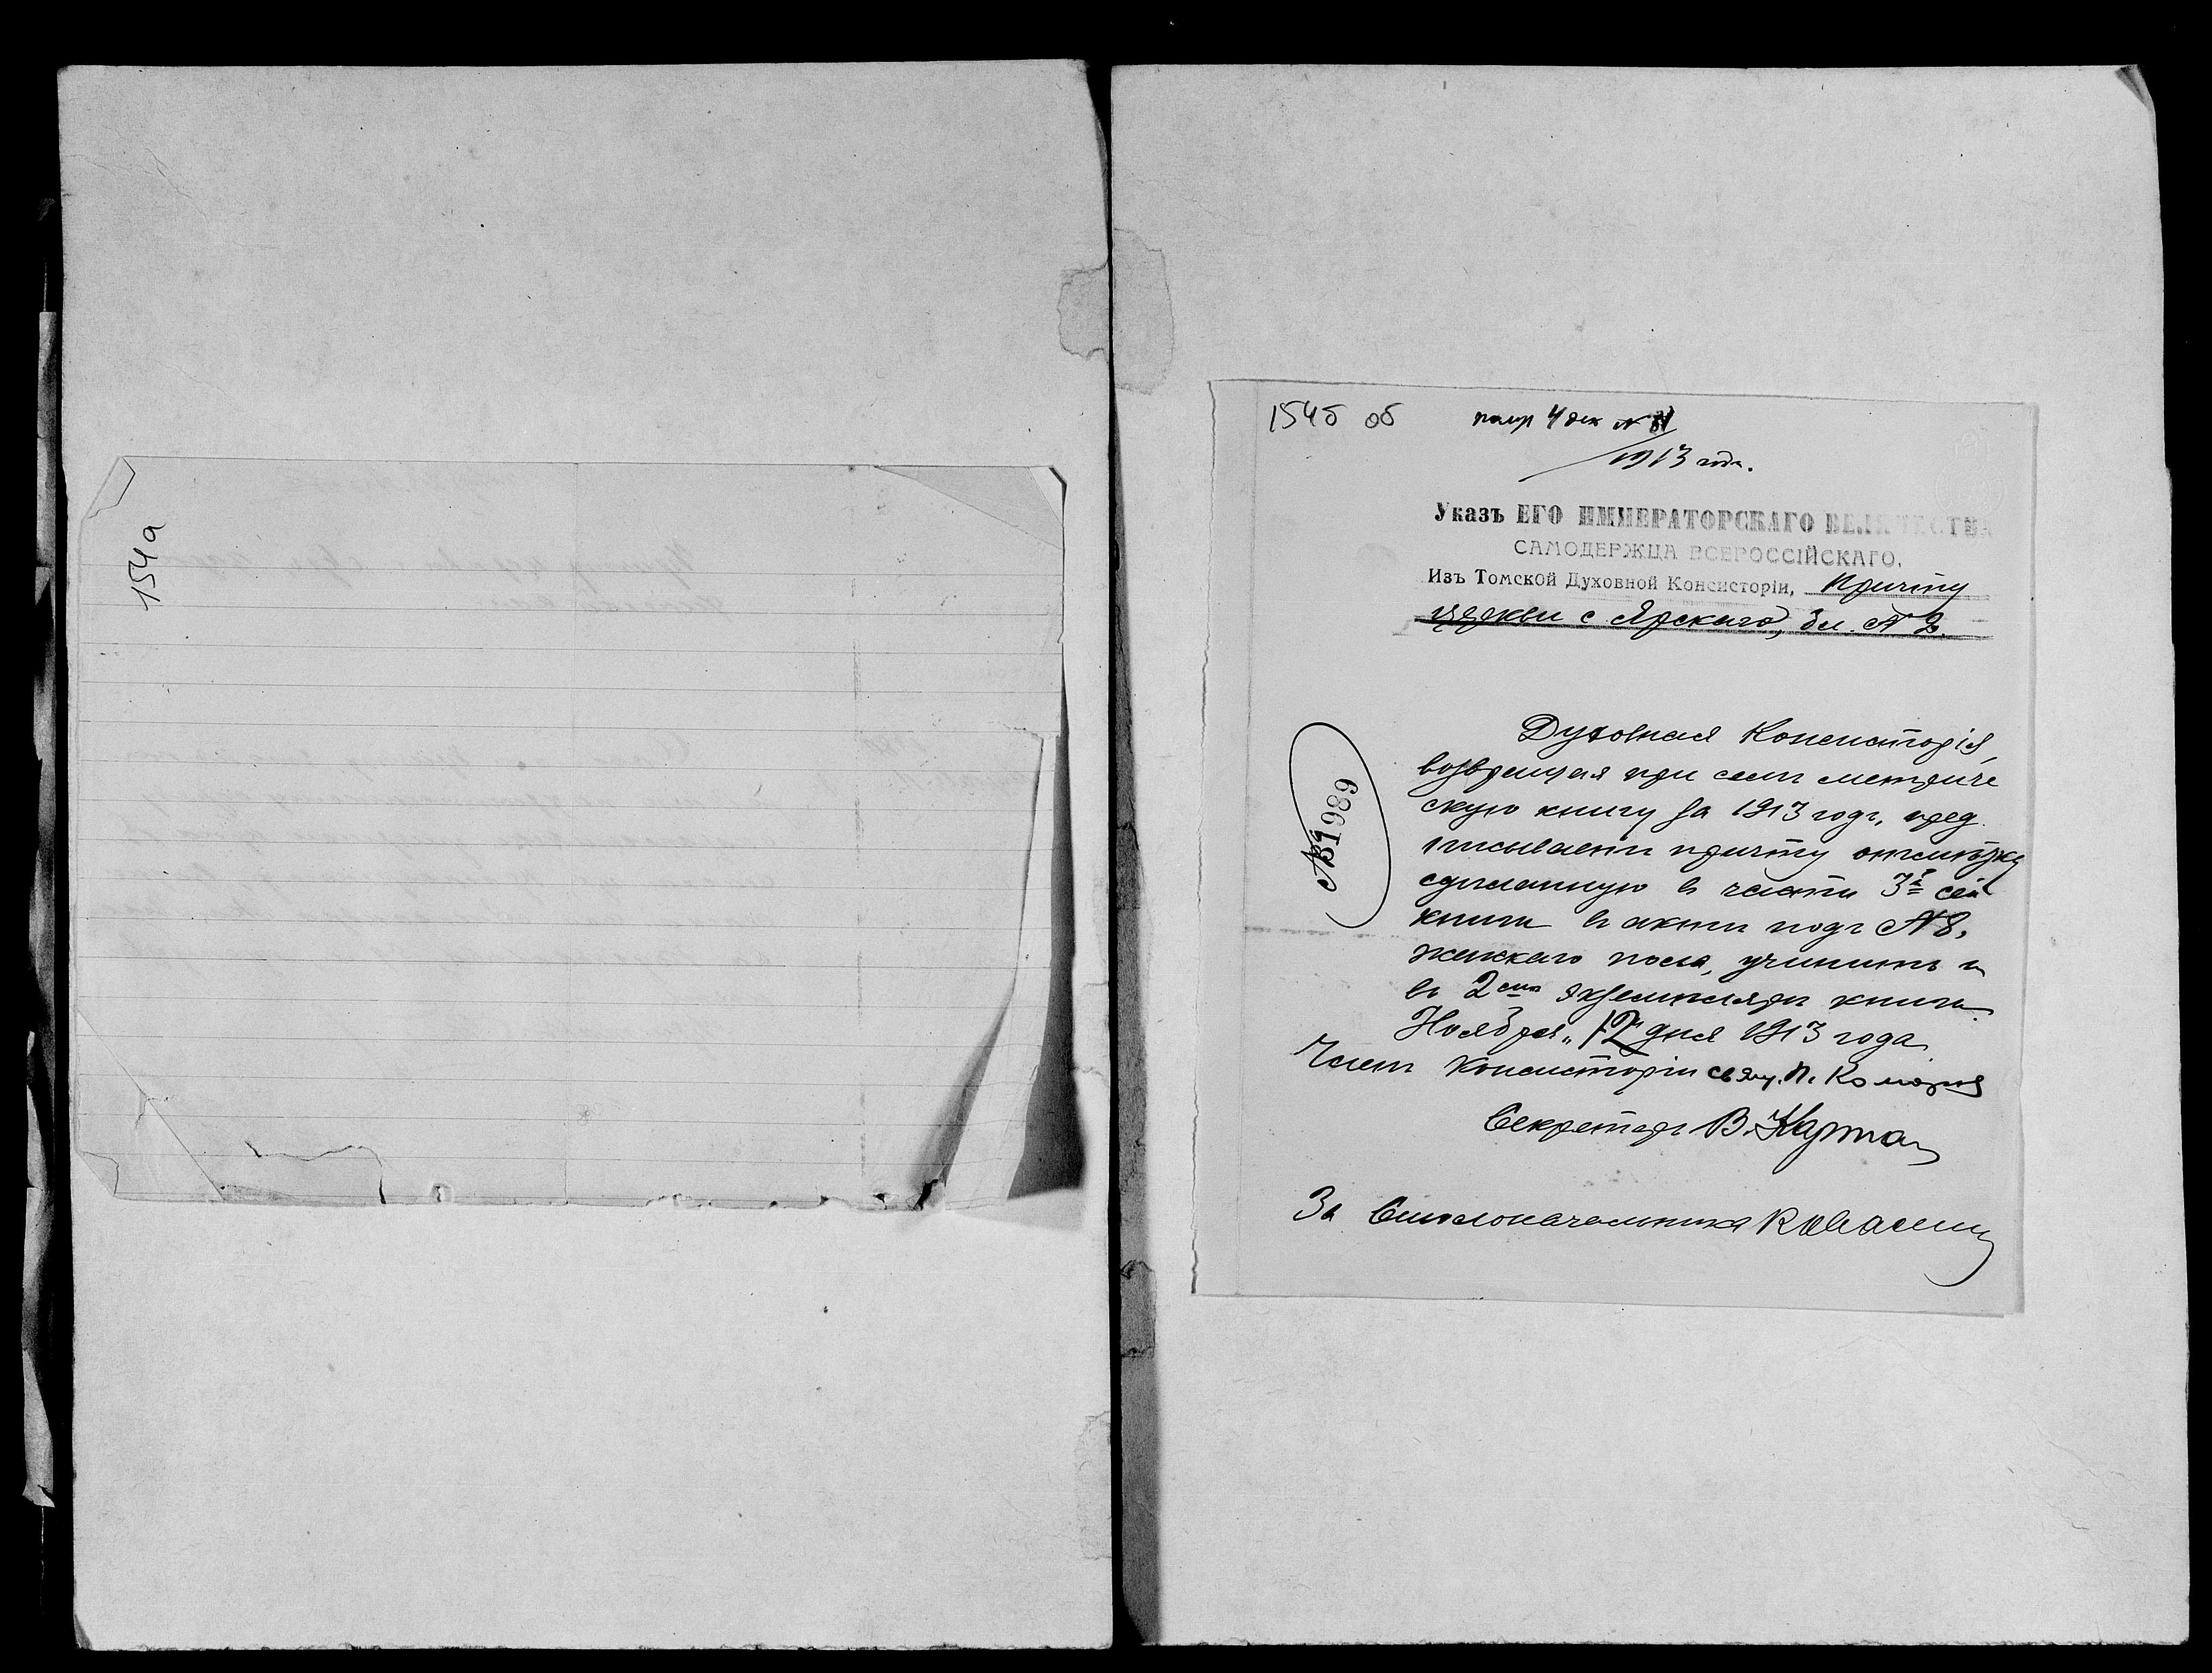 154а
154б об
полу 4 дек № 81
1913 года.
Указъ ЕГО ИМПЕРАТОРСКАГО ВЕЛИЧЕСТВА
САМОДЕРЖЦА ВСЕРОССІЙСКАГО.
Изъ Томской Духовной Консисторіи, Причту
церкви с Ярскаго, бл. № 2.
Духовная Консисторія,
возвращая при семъ метриче
скую книгу за 1913 годъ, пред
писываетъ причту отмѣтку
сдѣланную въ части 3й сей
книги въ актѣ подъ № 8,
женскаго пола, учинить и
въ 2омъ экземплярѣ книги.
Ноября „12" дня 1913 года
№ 31989
Членъ Консисторіи свящ. П. Комаровъ
Секретарь В. Карта
За Столоначальника